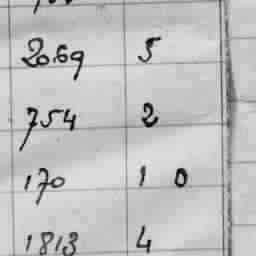 2069 5
754 2
170 1 0
1813 4